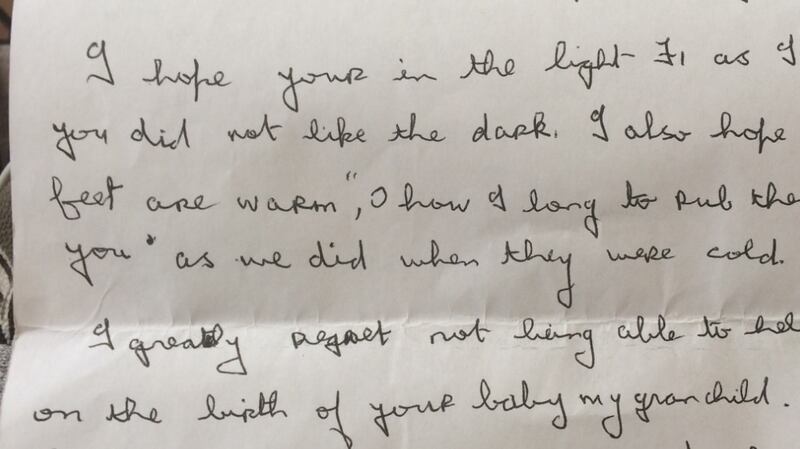 I hope your in the light as I
you did not like the dark. I also hope
feet are warm", O how I long to rub the
you" as we did when they were cold.
I greatly regret not being able to hel
on the birth of your baby my granchild.